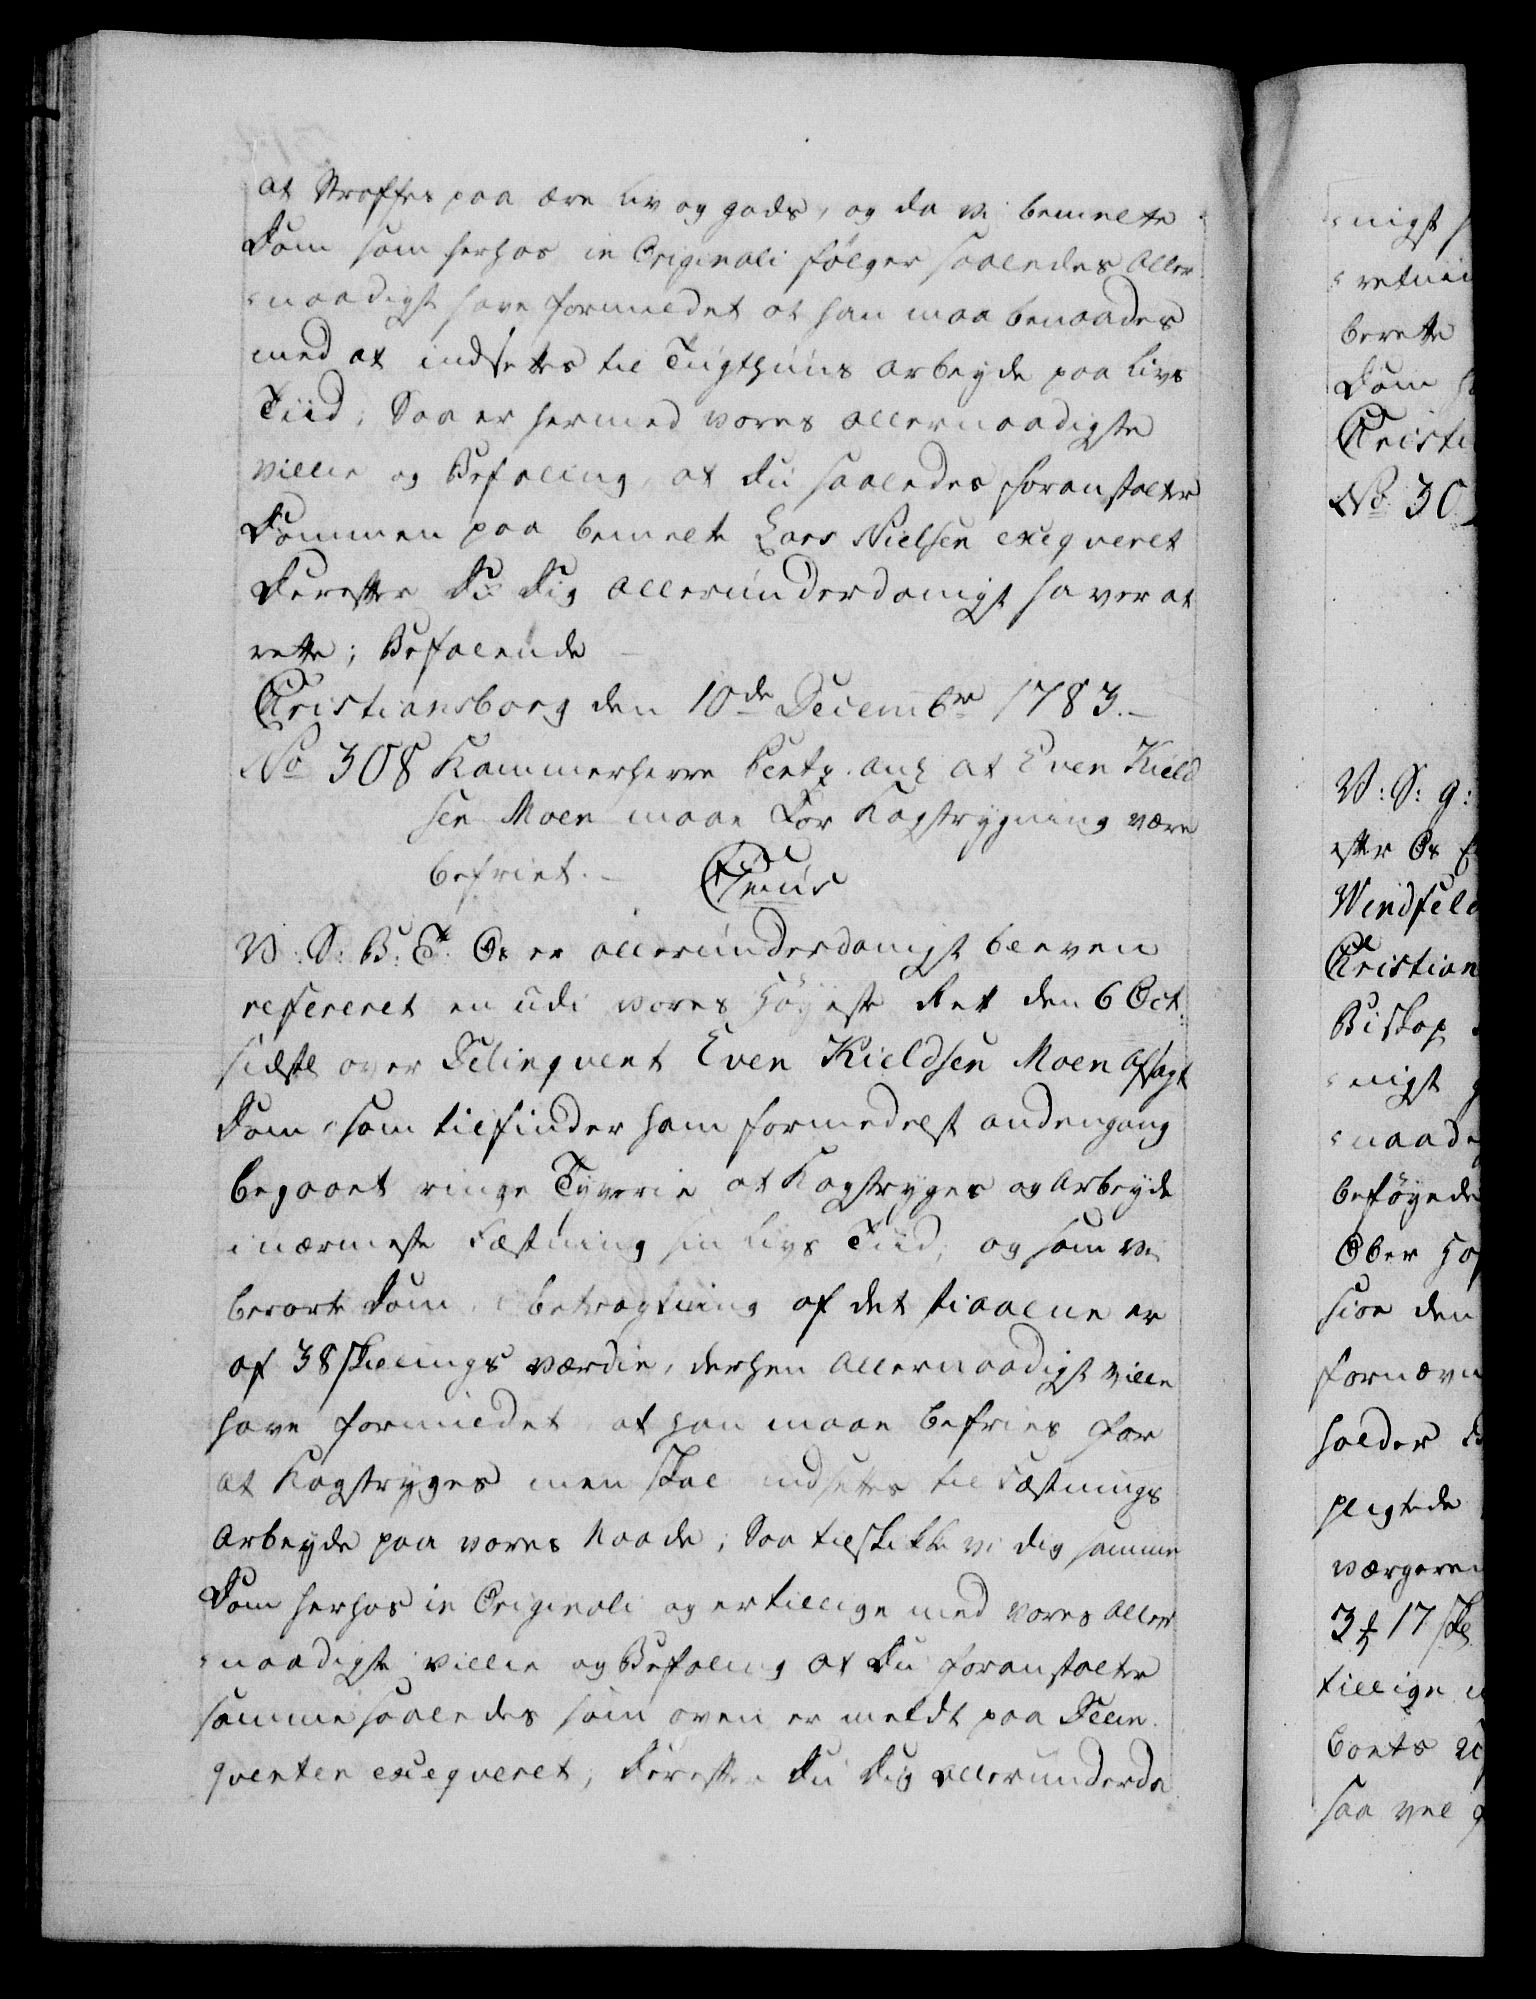 at Straffes paa ære liv og gods, og da vi bemelte
Dom som herhos in Originali følger saaledes Aller
naadigst have formildet at han maa benaades
med at indsettes til Tugthuus arbeyde paa Livs
Tiid; Saa er hermed vores allernaadigste
villie og Befaling, at du saaledes foranstalter
Dommen paa bemelte Lars Nielsen exeqveret
Derefter Du Dig allerunderdanigst haver at
rette; Befalende
Christiansborg den 10de Decembr 1783.
No 308 Kammerherre anl at Even Kield
sen Moen maae for Kagstrygning være
befriet.
V: S: B: T: Os er allerunderdanigst bleven
refereret en udi vores Høyeste Ret den 6 Oct.
sidstl over Delinqvent Even Kieldsen Moen afsagt
Dom, som tilfinder ham formedelst andengang
begaaet ringe Tyverie at Kagstryges og Arbeyde
i nærmeste Fæstning sin Livs Tiid, og som vi
berørte Dom, i betragtning af det stiaalne er
af 38 skillings værdie, derhen Allernaadigst ville
have formildet, at han maae befries for
at Kagstryges men skal indsettes til Fæstnings
Arbeyde paa vores Naade; Saa tilskikke vi dig samme
Dom herhos in Originali og er tillige med vores Aller
naadigste villie og Befaling at Du foranstalter
samme saaledes som oven er meldt paa Delin
qventen exeqveret, Derefter Du Dig allerunderda
nigst
retnin
berette
Dom
Christi
No 30
V: S: g:
efter Os
Windfeld
Christian
Biskop
nigst
naade
beføyede
Ober Hof
sion den
fornævn
holder
pligtede
værgeren
17 skl
tillige
Boets
saa vel